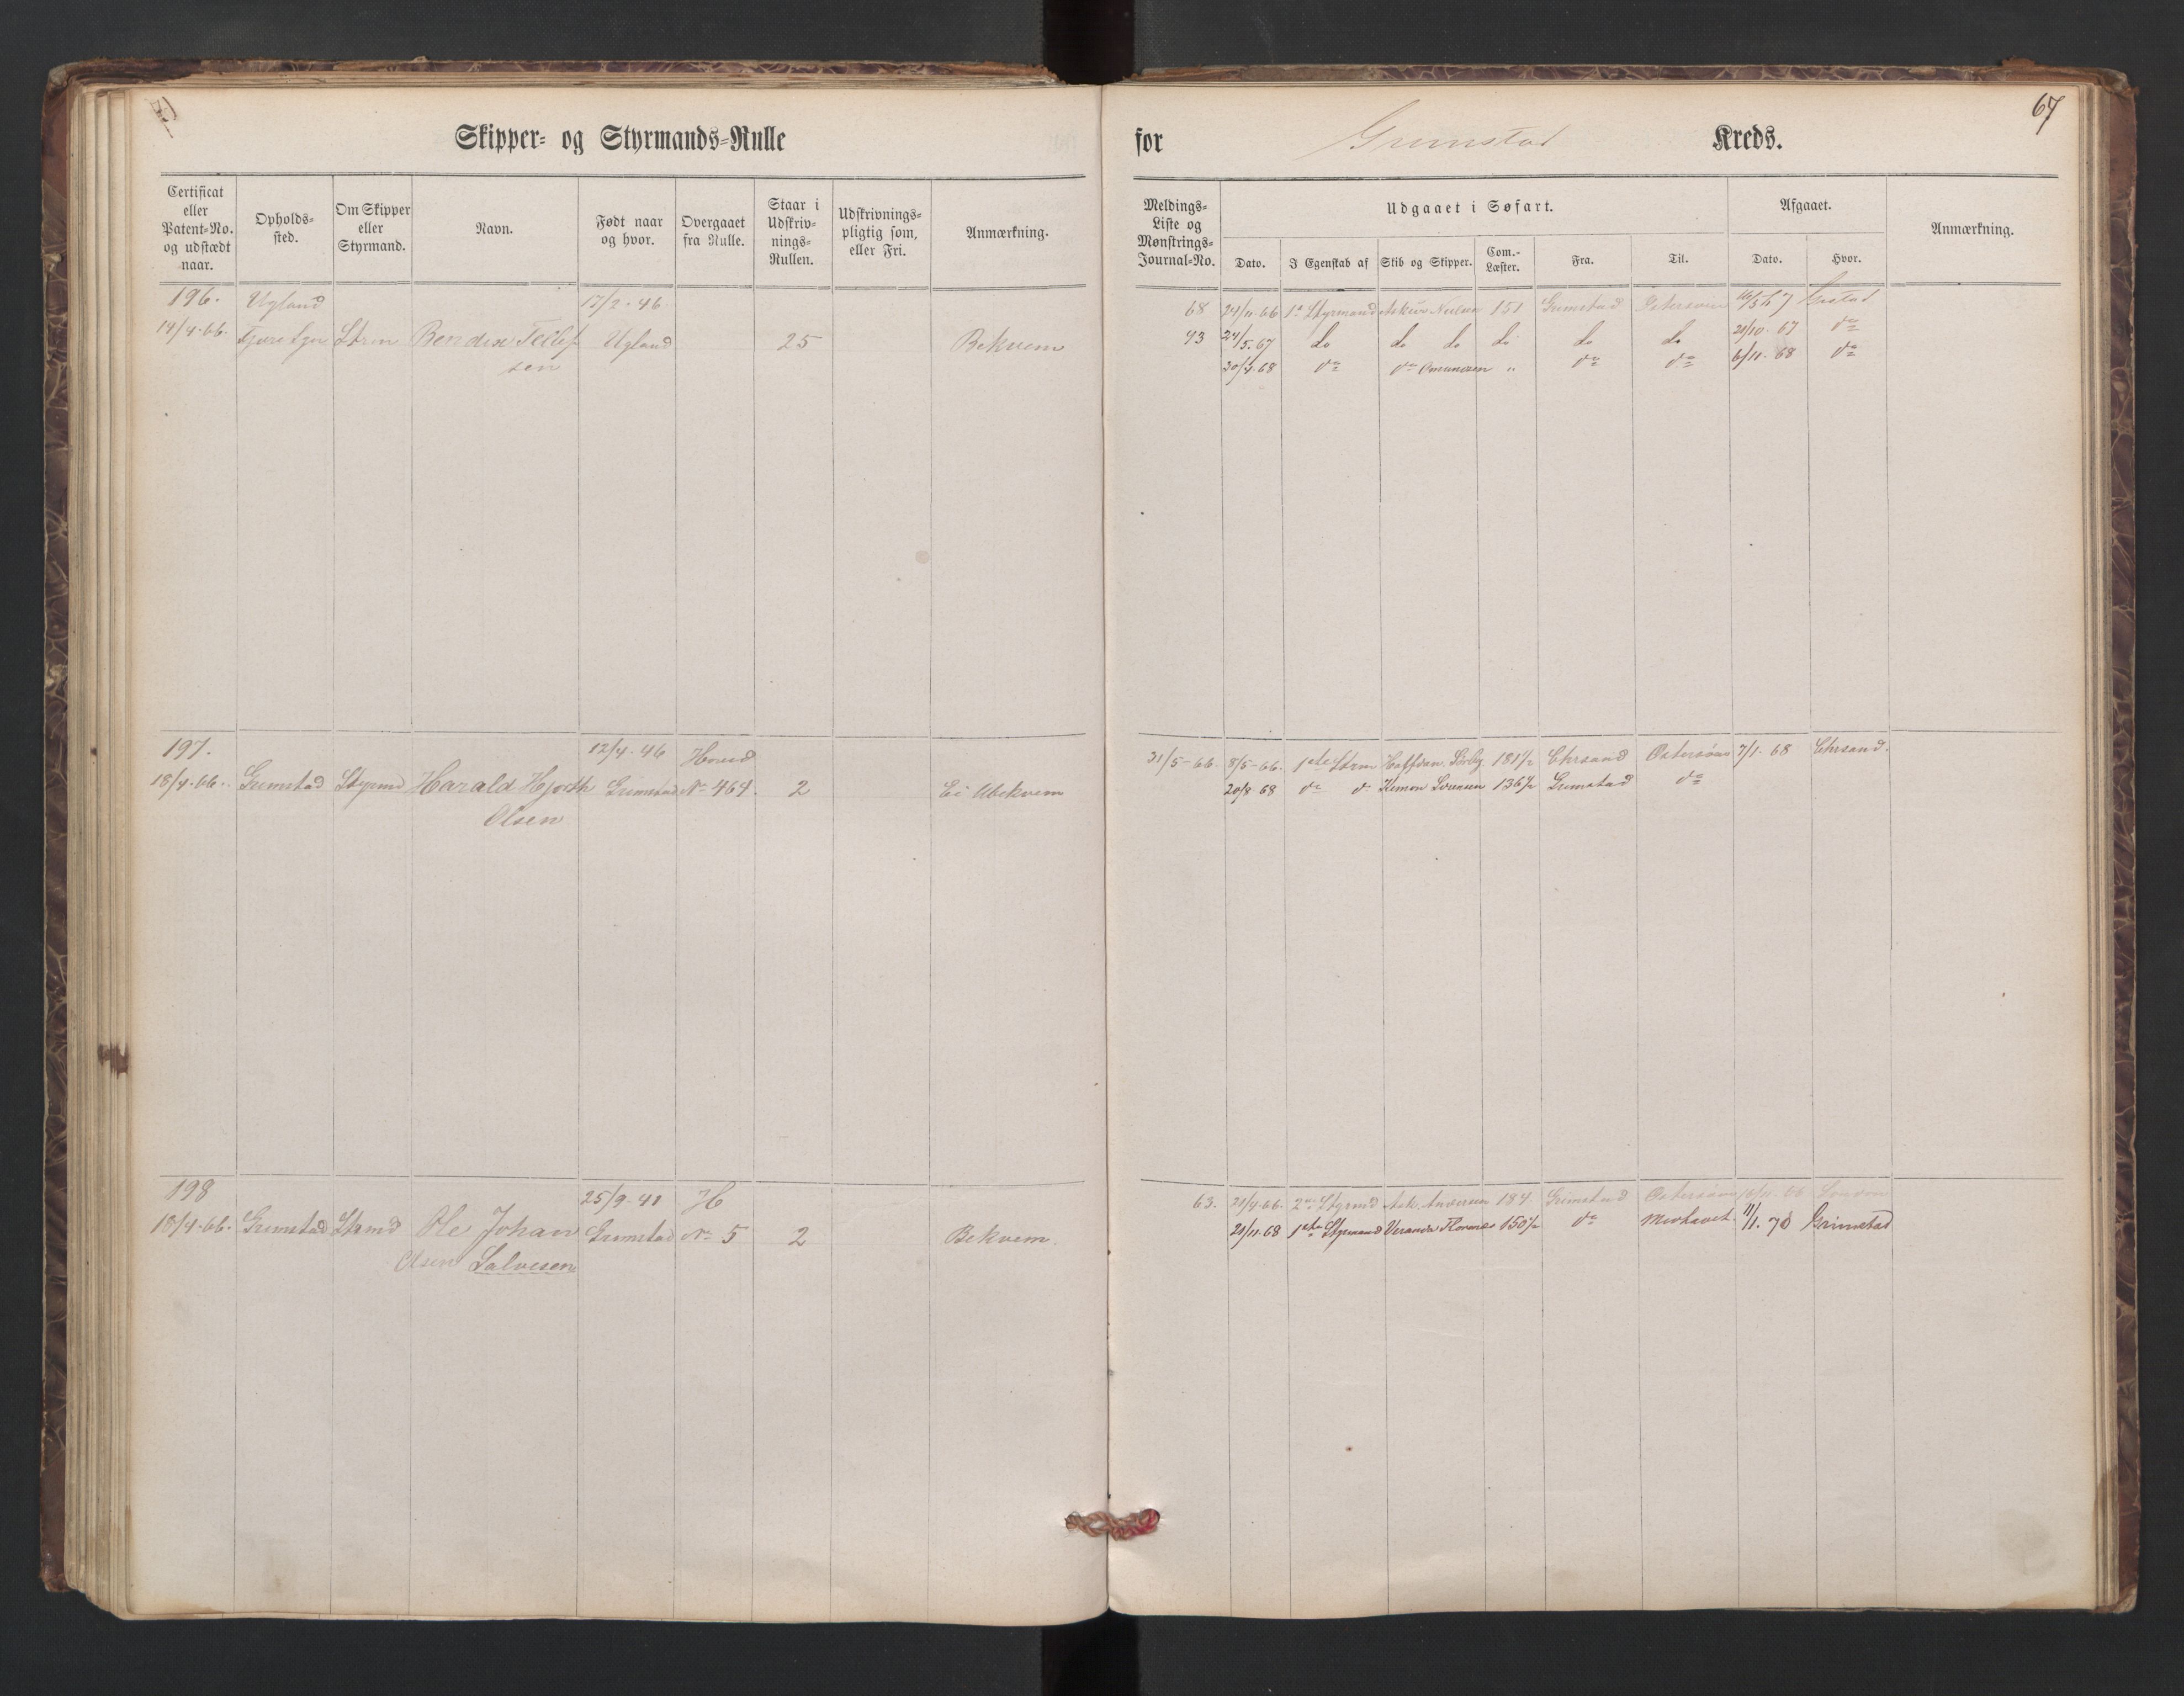 Skipper- og Styrmands-Rulle
Certificat eller Patent-No. og udstædt naar.
Opholds-sted.
Om Skipper eller Styrmand.
Navn.
Født naar og hvor.
Overgaaet fra Rulle.
Staar i Udskriv-nings-Rullen.
Udskrivnings-pligtig som, eller Fri.
Anmærkning.
196. Ugland 17/2-46.
14/4-66. Strm Bendix Tellef Ugland 25 Bekvem
sen
197. 12/4-46 Hoved
18/4-66. Grimstad Styrmd Harald Hjorth Grimstad No 464. 2 Ei Ubekvem
Olsen
198 25/9-41 H
18/4-66. Grimstad Strmd Ole Johan Grimstad No 5 2 Bekvem.
Olsen Salvesen
for Grimstad Kreds.
67
Meldings-Liste og Mønstrings-Journal-No.
Udgaaet i Søfart.
Dato.
I Egenskab af
Skib og Skipper.
Com.-Læster.
Fra.
Til.
Afgaaet.
Dato.
Hvor.
Anmærkning.
68 24/11-66 1e Styrmand Nielsen 151 Grimstad Østersøen 16/5 67 Gmstad
93 24/5.67 do do do do do do 21/10-67 do
30/4-68 do do Omundsen " do do 6/11-68 do
31/5-66. 8/5-66. 1ste Strm Halfdan. Sørby. 181 1/2 Chrsand Østersøen 7/1-68 Chrsand.
20/8 68 do do Kemon Sørensen 136 1/2 Grimstad do
63. 21/4-66. 2den Styrmd Ask. Andersen 184. Grimstad Østersøen London
21/11-68 1ste Styrmand Veranda Florenes 150 1/2 do Midhavet 11/1. 70 Grimstad